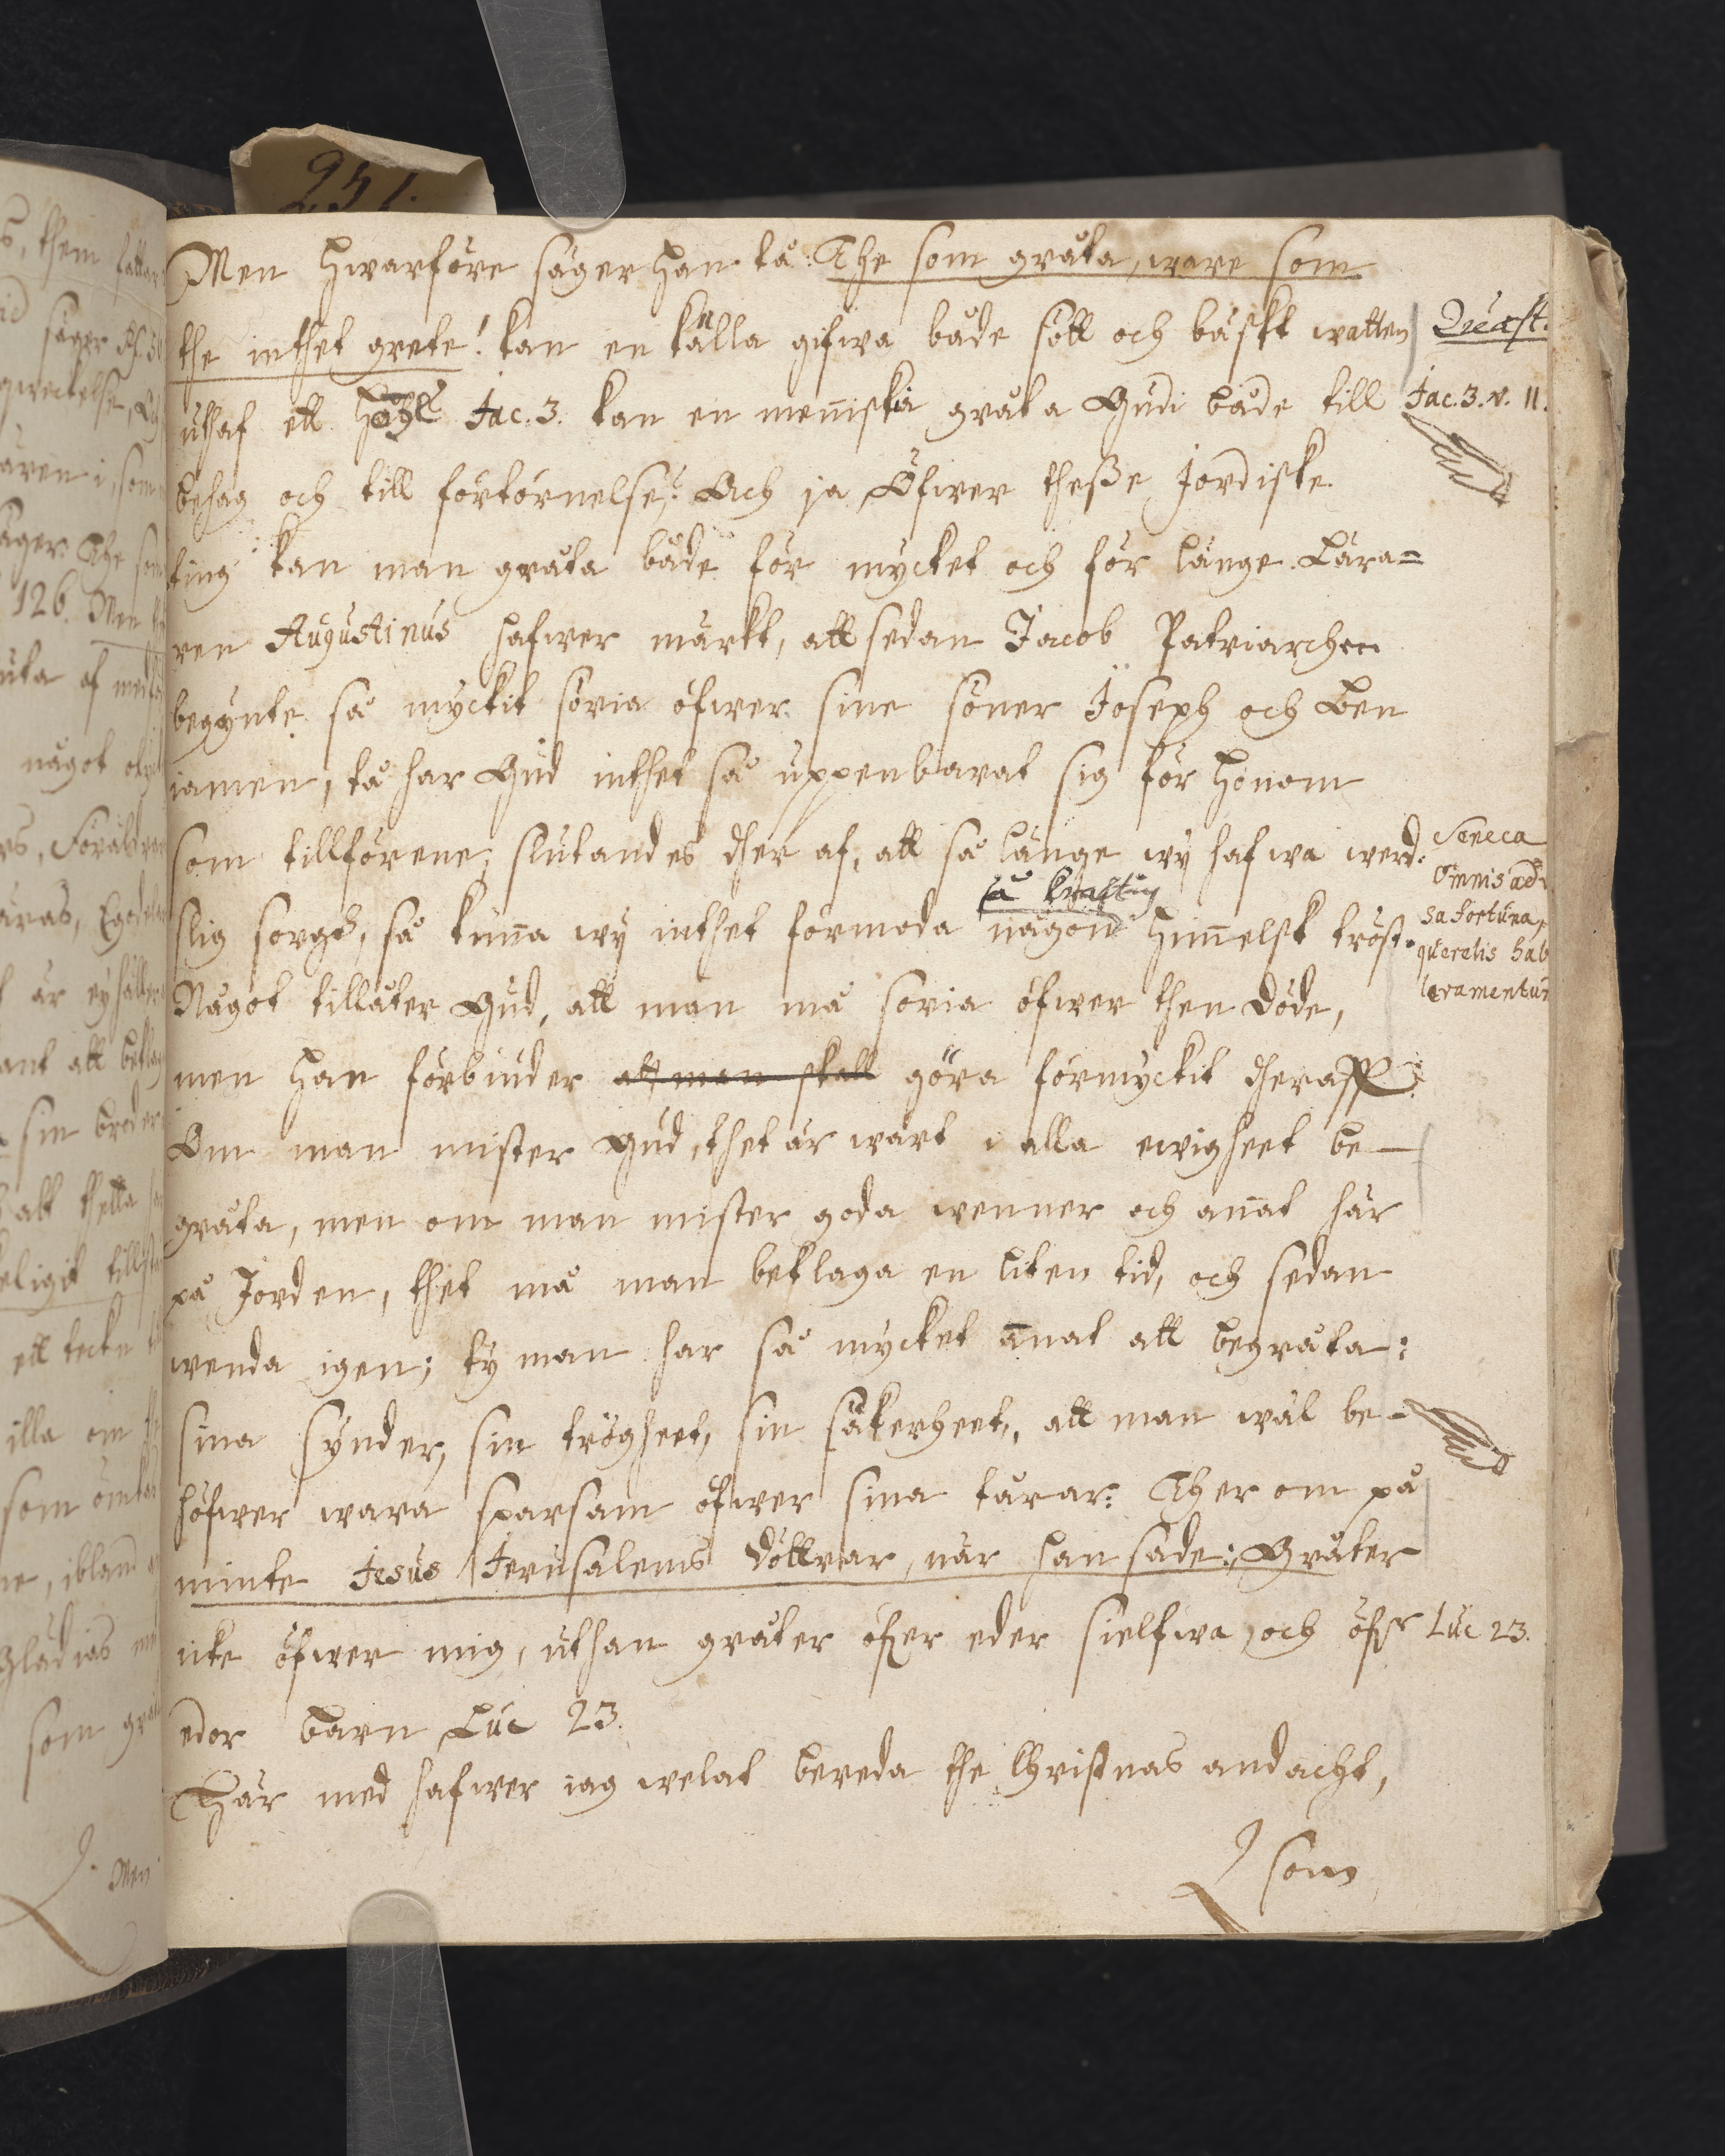 251.
Men hwarföre säger han tå: The som gråta, ware som
the inthet grete! kan en källa gifwa både sött och bäskt watten
Quæst.
uthaf ett Jac. 3. kan en menniskia gråta Gudi både till
Jac. 3. v. 11.
behag och till förtörnelse? Ach ja Öfwer theße Jordiske
ting kan man gråta både för mycket och för länge. Lära=
ren Augustinus hafwer märkt, att sedan Jacob Patriarchen
begynte så myckit söria öfwer sine söner Joseph och Ben
iamen, tå har Gud inthet så uppenbarat sig för honom
som tillförene; slutandes ther af, att så länge wij hafwa werd-
Seneca
Omnis ad
slig sorgh, så kunna wij inthet förmoda någon så krafftig himelsk tröst.
sa fortuna,
querelis hab
Något tillåter Gud, att man må söria öfwer then döde,
men han förbiuder att man skall göra förmyckit theraff.
Om man mister Gud, thet är wärt i alla ewigheet be-
gråta, men om man mister goda wenner och anat här
på Jorden, thet må man beklaga en liten tid, och sedan
wenda igen; ty man har så mycket anat att begråta:
sina synder, sin trögheet, sin säkerheet, att man wäl be-
höfwer wara sparsam öfwer sina tårar: Ther om på
minte Jesus Jerusalems döttrar, när han sade: Gråter
icke öfwer mig, uthan gråter öfwer eder sielfwa, och öfwer
Luc 23.
edor barn Luc 23.
Här med hafwer iag welat bereda the Christnas andacht,
som